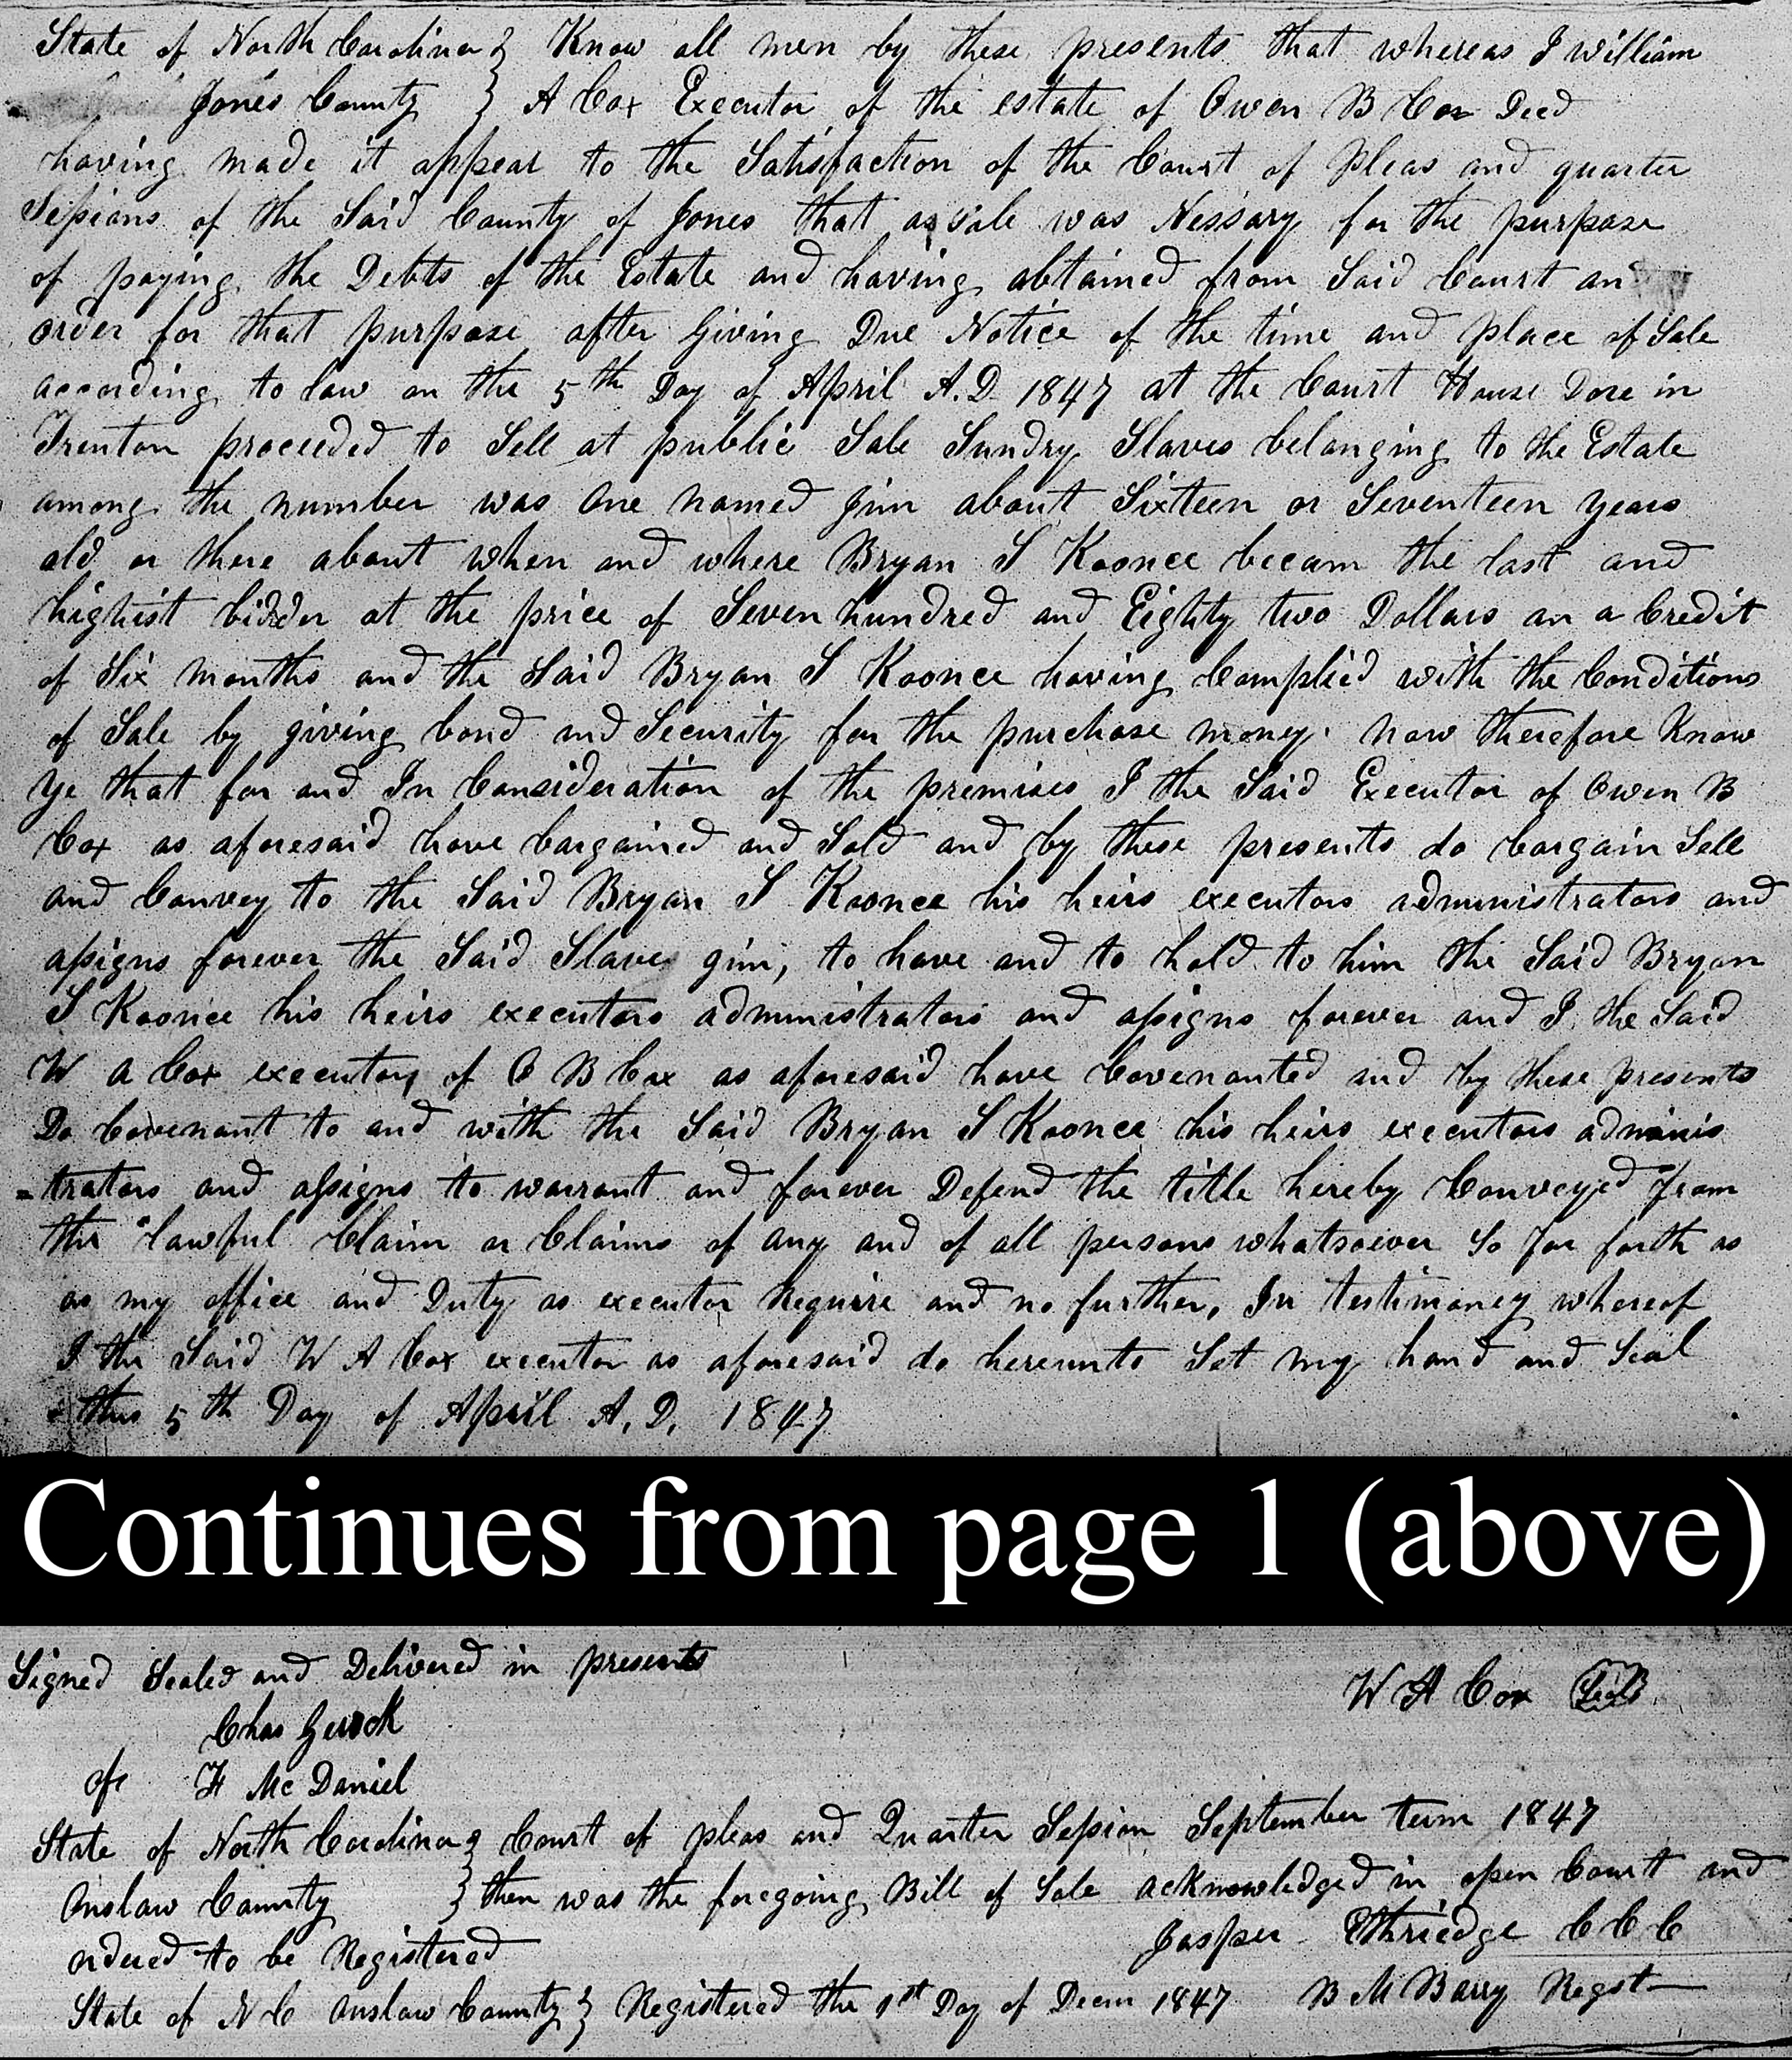 State of North Carolina } Know all men by these presents that whereas I William
Jones County } A Cox Executor of the estate of Owen B Cox Decd
having made it appear to the Satisfaction of the Court of Pleas and quarter
Sessions of the Said County of Jones that a Sale was Nessary for the purpose
of paying the Debts of the Estate and having obtained from Said Court an
order for that purpose after Giving Due Notice of the time and place of Sale
according to law on the 5th Day of April A.D. 1847 at the Court House Dore in
Trenton proceeded to Sell at public Sale Sundry Slaves belonging to the Estate
among the number was one named Jim about Sixteen or Seventeen years
old or there about when and where Bryan S Koonce becam the last and
highist bidder at the price of Seven hundred and Eighty two Dollars on a Credit
of Six months and the Said Bryan S Koonce having Complied with the Conditions
of Sale by giving bond and Security for the purchase money. now therefore Know
ye that for and In Consideration of the premises I the Said Executor of Owen B
Cox as aforesaid have bargained and Sold and by these presents do bargain Sell
and Convey to the Said Bryan S Koonce his heirs executors administrators and
assigns forever the Said Slave gim, to have and to hold to him the Said Bryan
S Koonce his heirs executors administrators and assigns forever and I the Said
W A Cox executor of O B Cox as aforesaid have Covenanted and by these presents
Do Covenant to and with the Said Bryan S Koonce his heirs executors adminis
=trators and assigns to warrant and forever Defend the title hereby Conveyed from
the lawful Claim or Claims of any and of all persons whatsoever So far forth as
as my office and Duty as executor Require and no further, In testimoney whereof
I the Said W A Cox executor as aforesaid do hereunto Set my hand and Seal
this 5th Day of April A.D. 1847
Continues from page 1 (above)
Signed Sealed and Delivered in presents
W A Cox Seal
Chas Gerock
of F McDaniel
State of North Carolina } Court of pleas and Quarter Session September term 1847
Onslow County } then was the foregoing Bill of Sale acknowledged in open Court and
ordered to be Registered
Jasper Ethriedge C C C
State of N C Onslow County } Registered the 1st Day of Decm 1847 B M Barry Regst